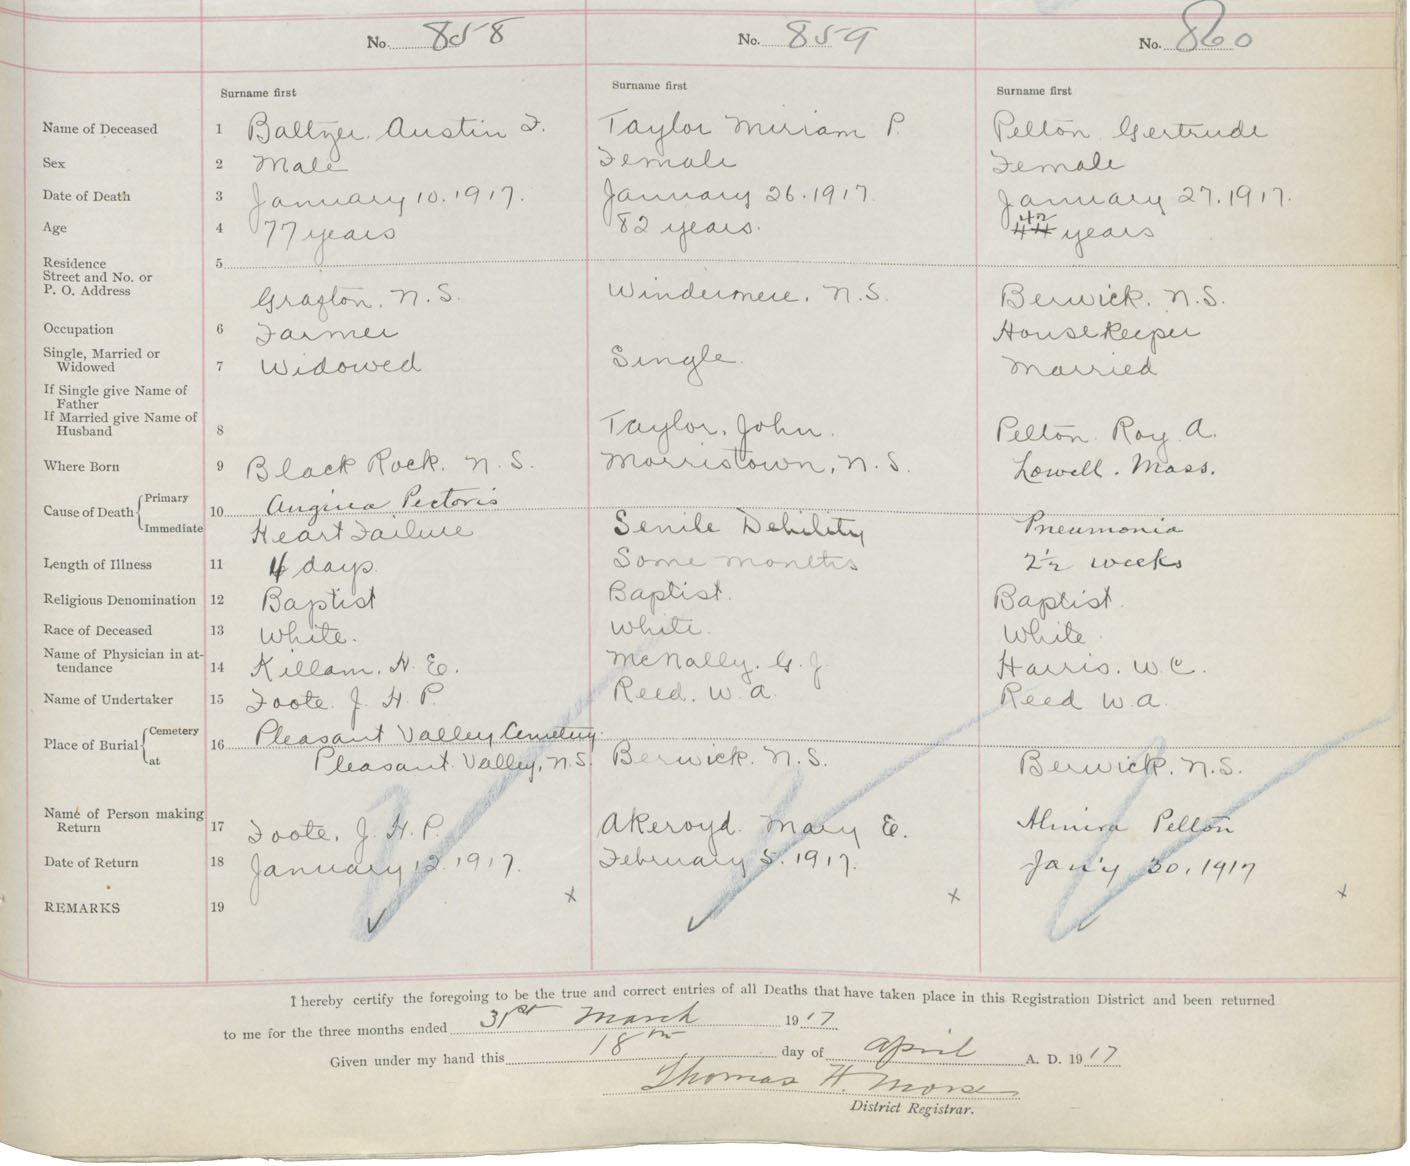 No. 858 No. 859 No. 860
Surname first Surname first Surname first
Name of Deceased 1 Baltzer. Austin F. Taylor Miriam P. Pelton Gertrude
Sex 2 Male Female Female
Date of Death 3 January 10.1917. January 26.1917 January 27.1917.
Age 4 77 years 82 years. 42 44 years
Residence 5
Street and No. or
P. O. Address Grafton. N.S. Windermere, N.S. Berwick. N.S.
Occupation 6 Farmer Housekeeper
Single, Married or
Widowed 7 Widowed Single. Married
If Single give Name of
Father
If Married give Name of
Husband 8 Taylor, John. Pelton. Roy A.
Where Born 9 Black Rock. N.S. Morristown, N.S. Lowell. Mass.
Cause of Death Primary 10 Angina Pectoris
Immediate Heart Failure Senile Debility Pneumonia
Length of Illness 11 4 days. Some months 2½ weeks
Religious Denomination 12 Baptist Baptist. Baptist.
Race of Deceased 13 White. White. White
Name of Physician in at-
tendance 14 Killam. H. E. McNally. G. J. Harris. W. C.
Name of Undertaker 15 Foote. J. H. P. Reed. W. A. Reed W. A.
Place of Burial Cemetery 16 Pleasant Valley Cemetery.
at Pleasant Valley, N.S. Berwick. N.S. Berwick. N.S.
Name of Person making
Return 17 Foote. J. H. P. Akeroyd. Mary E. Almira Pelton
Date of Return 18 January 12.1917. February 5.1917. Jan'y 30, 1917
REMARKS 19 x x x
I hereby certify the foregoing to be the true and correct entries of all Deaths that have taken place in this Registration District and been returned
to me for the three months ended 31st March 1917
Given under my hand this 18th day of April A. D. 1917
Thomas H. Morse
District Registrar.